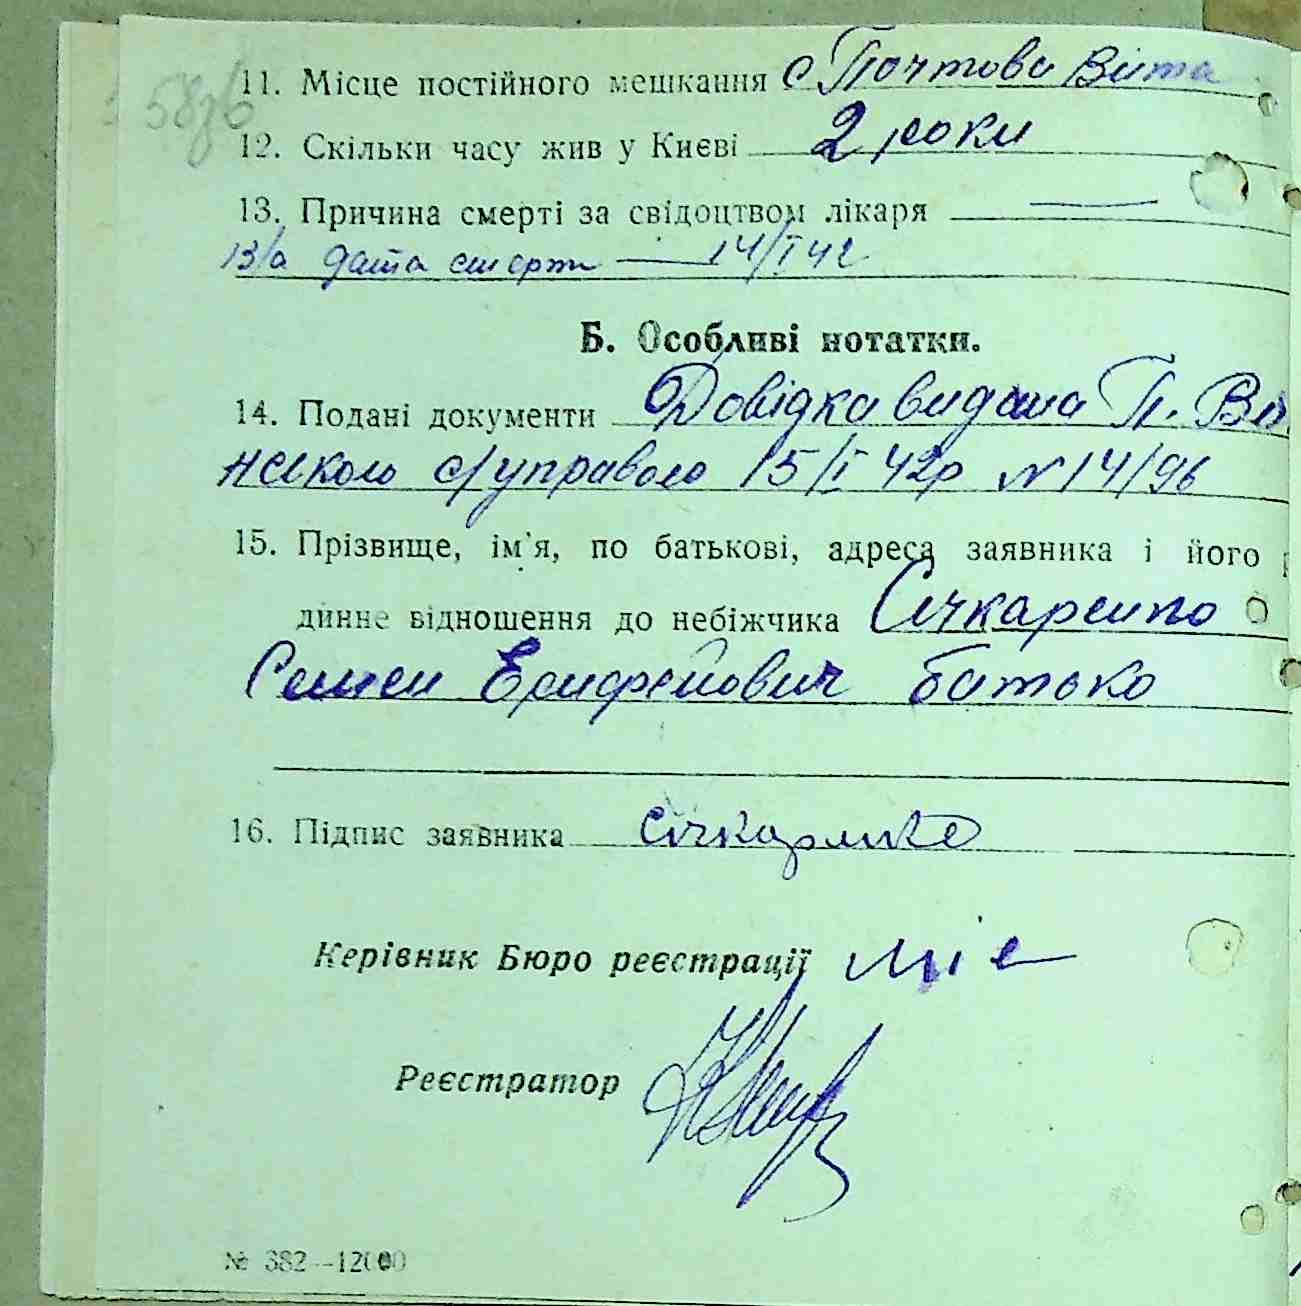 58зв
11. Місце постійного мешкання с Почтова Віта
12. Скільки часу жив у Києві 2 роки
13. Причина смерті за свідоцтвом лікаря —
13/а дата смерти — 14/I 42
Б. Особливі нотатки.
14. Подані документи Довідка видана П. Віт
неською с/управою 15/I 42р N 14/96
15. Прізвище, ім'я, по батькові, адреса заявника і його р
динне відношення до небіжчика Січкаренко
Семен Ерифейович батько
16. Підпис заявника Січкаренко
Керівник Бюро реєстрації
Реєстратор
№ 382—12000